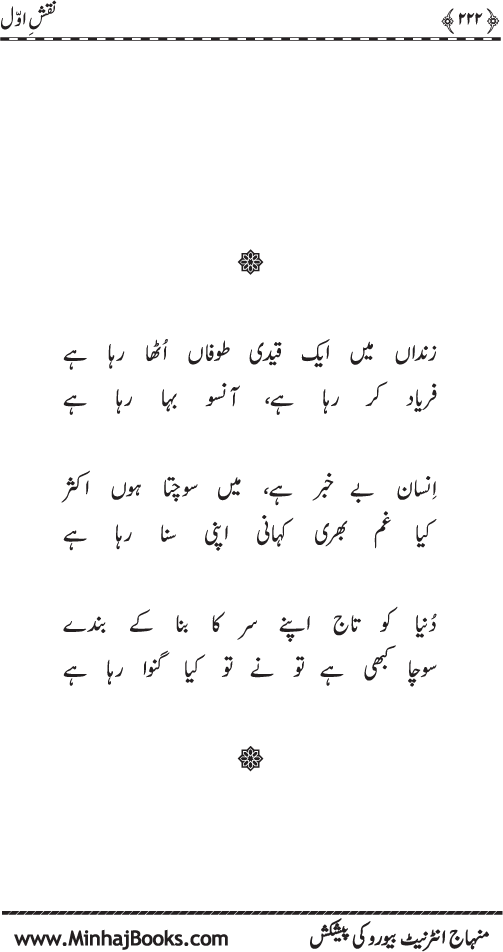 ﴿ ۲۲۲ ﴾ نقشِ اوّل
زنداں میں ایک قیدی طوفاں اُٹھا رہا ہے
فریاد کر رہا ہے، آنسو بہا رہا ہے
اِنسان بے خبر ہے، میں سوچتا ہوں اکثر
کیا غم بھری کہانی اپنی سنا رہا ہے
دُنیا کو تاج اپنے سر کا بنا کے بندے
سوچا کبھی ہے تو نے تو کیا گنوا رہا ہے
منہاج انٹرنیٹ بیورو کی پیشکش www.MinhajBooks.com